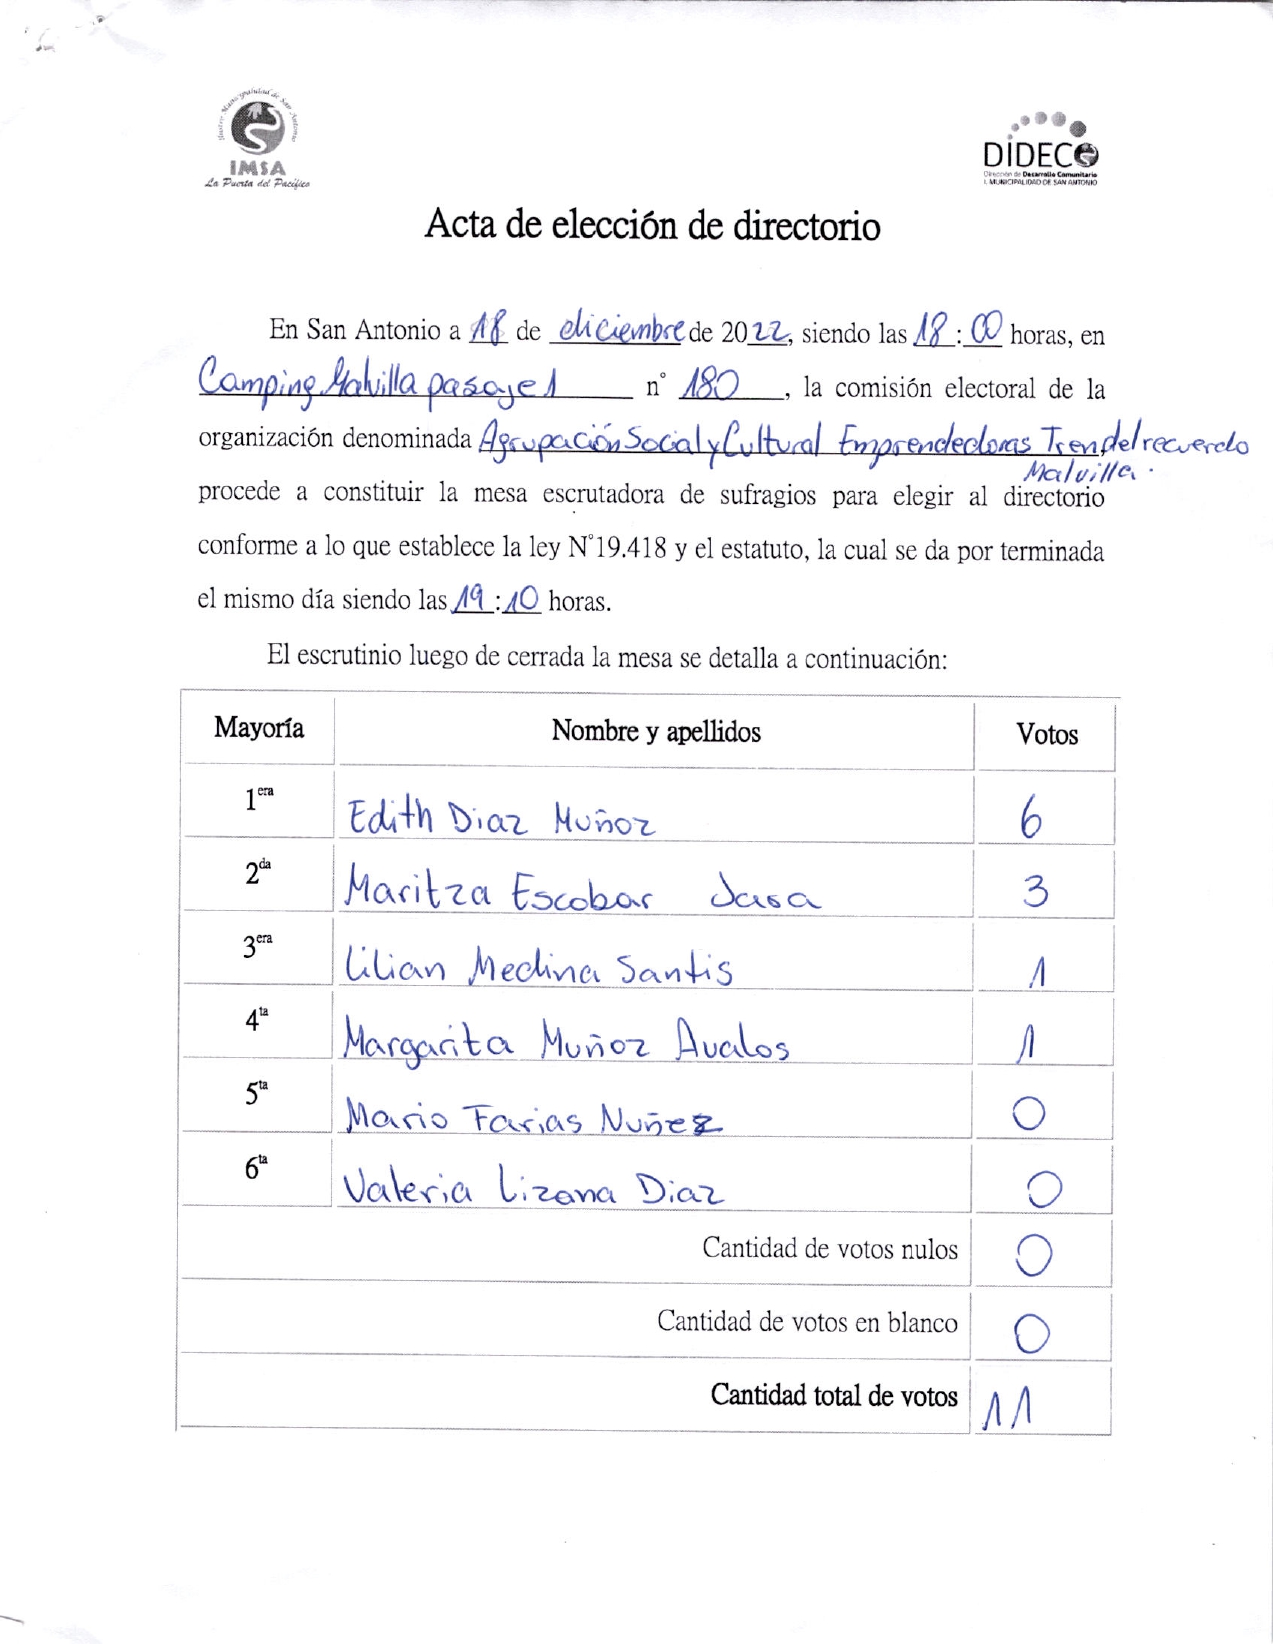 Ilustre Municipalidad de San Antonio
IMSA
La Puerta del Pacífico
DIDECO
Dirección de Desarrollo Comunitario
I. MUNICIPALIDAD DE SAN ANTONIO
Acta de elección de directorio
En San Antonio a 18 de diciembre de 2022, siendo las 18:00 horas, en
Camping Malvilla pasaje 1 n° 180, la comisión electoral de la
organización denominada Agrupación Social y Cultural Emprendedoras Tren del recuerdo
Malvilla.
procede a constituir la mesa escrutadora de sufragios para elegir al directorio
conforme a lo que establece la ley N°19.418 y el estatuto, la cual se da por terminada
el mismo día siendo las 19:10 horas.
El escrutinio luego de cerrada la mesa se detalla a continuación:
Mayoría Nombre y apellidos Votos
1era Edith Diaz Muñoz 6
2da Maritza Escobar Jasa 3
3era Lilian Medina Santis 1
4ta Margarita Muñoz Avalos 1
5ta Mario Farias Nuñez 0
6ta Valeria Lizana Diaz 0
Cantidad de votos nulos 0
Cantidad de votos en blanco 0
Cantidad total de votos 11